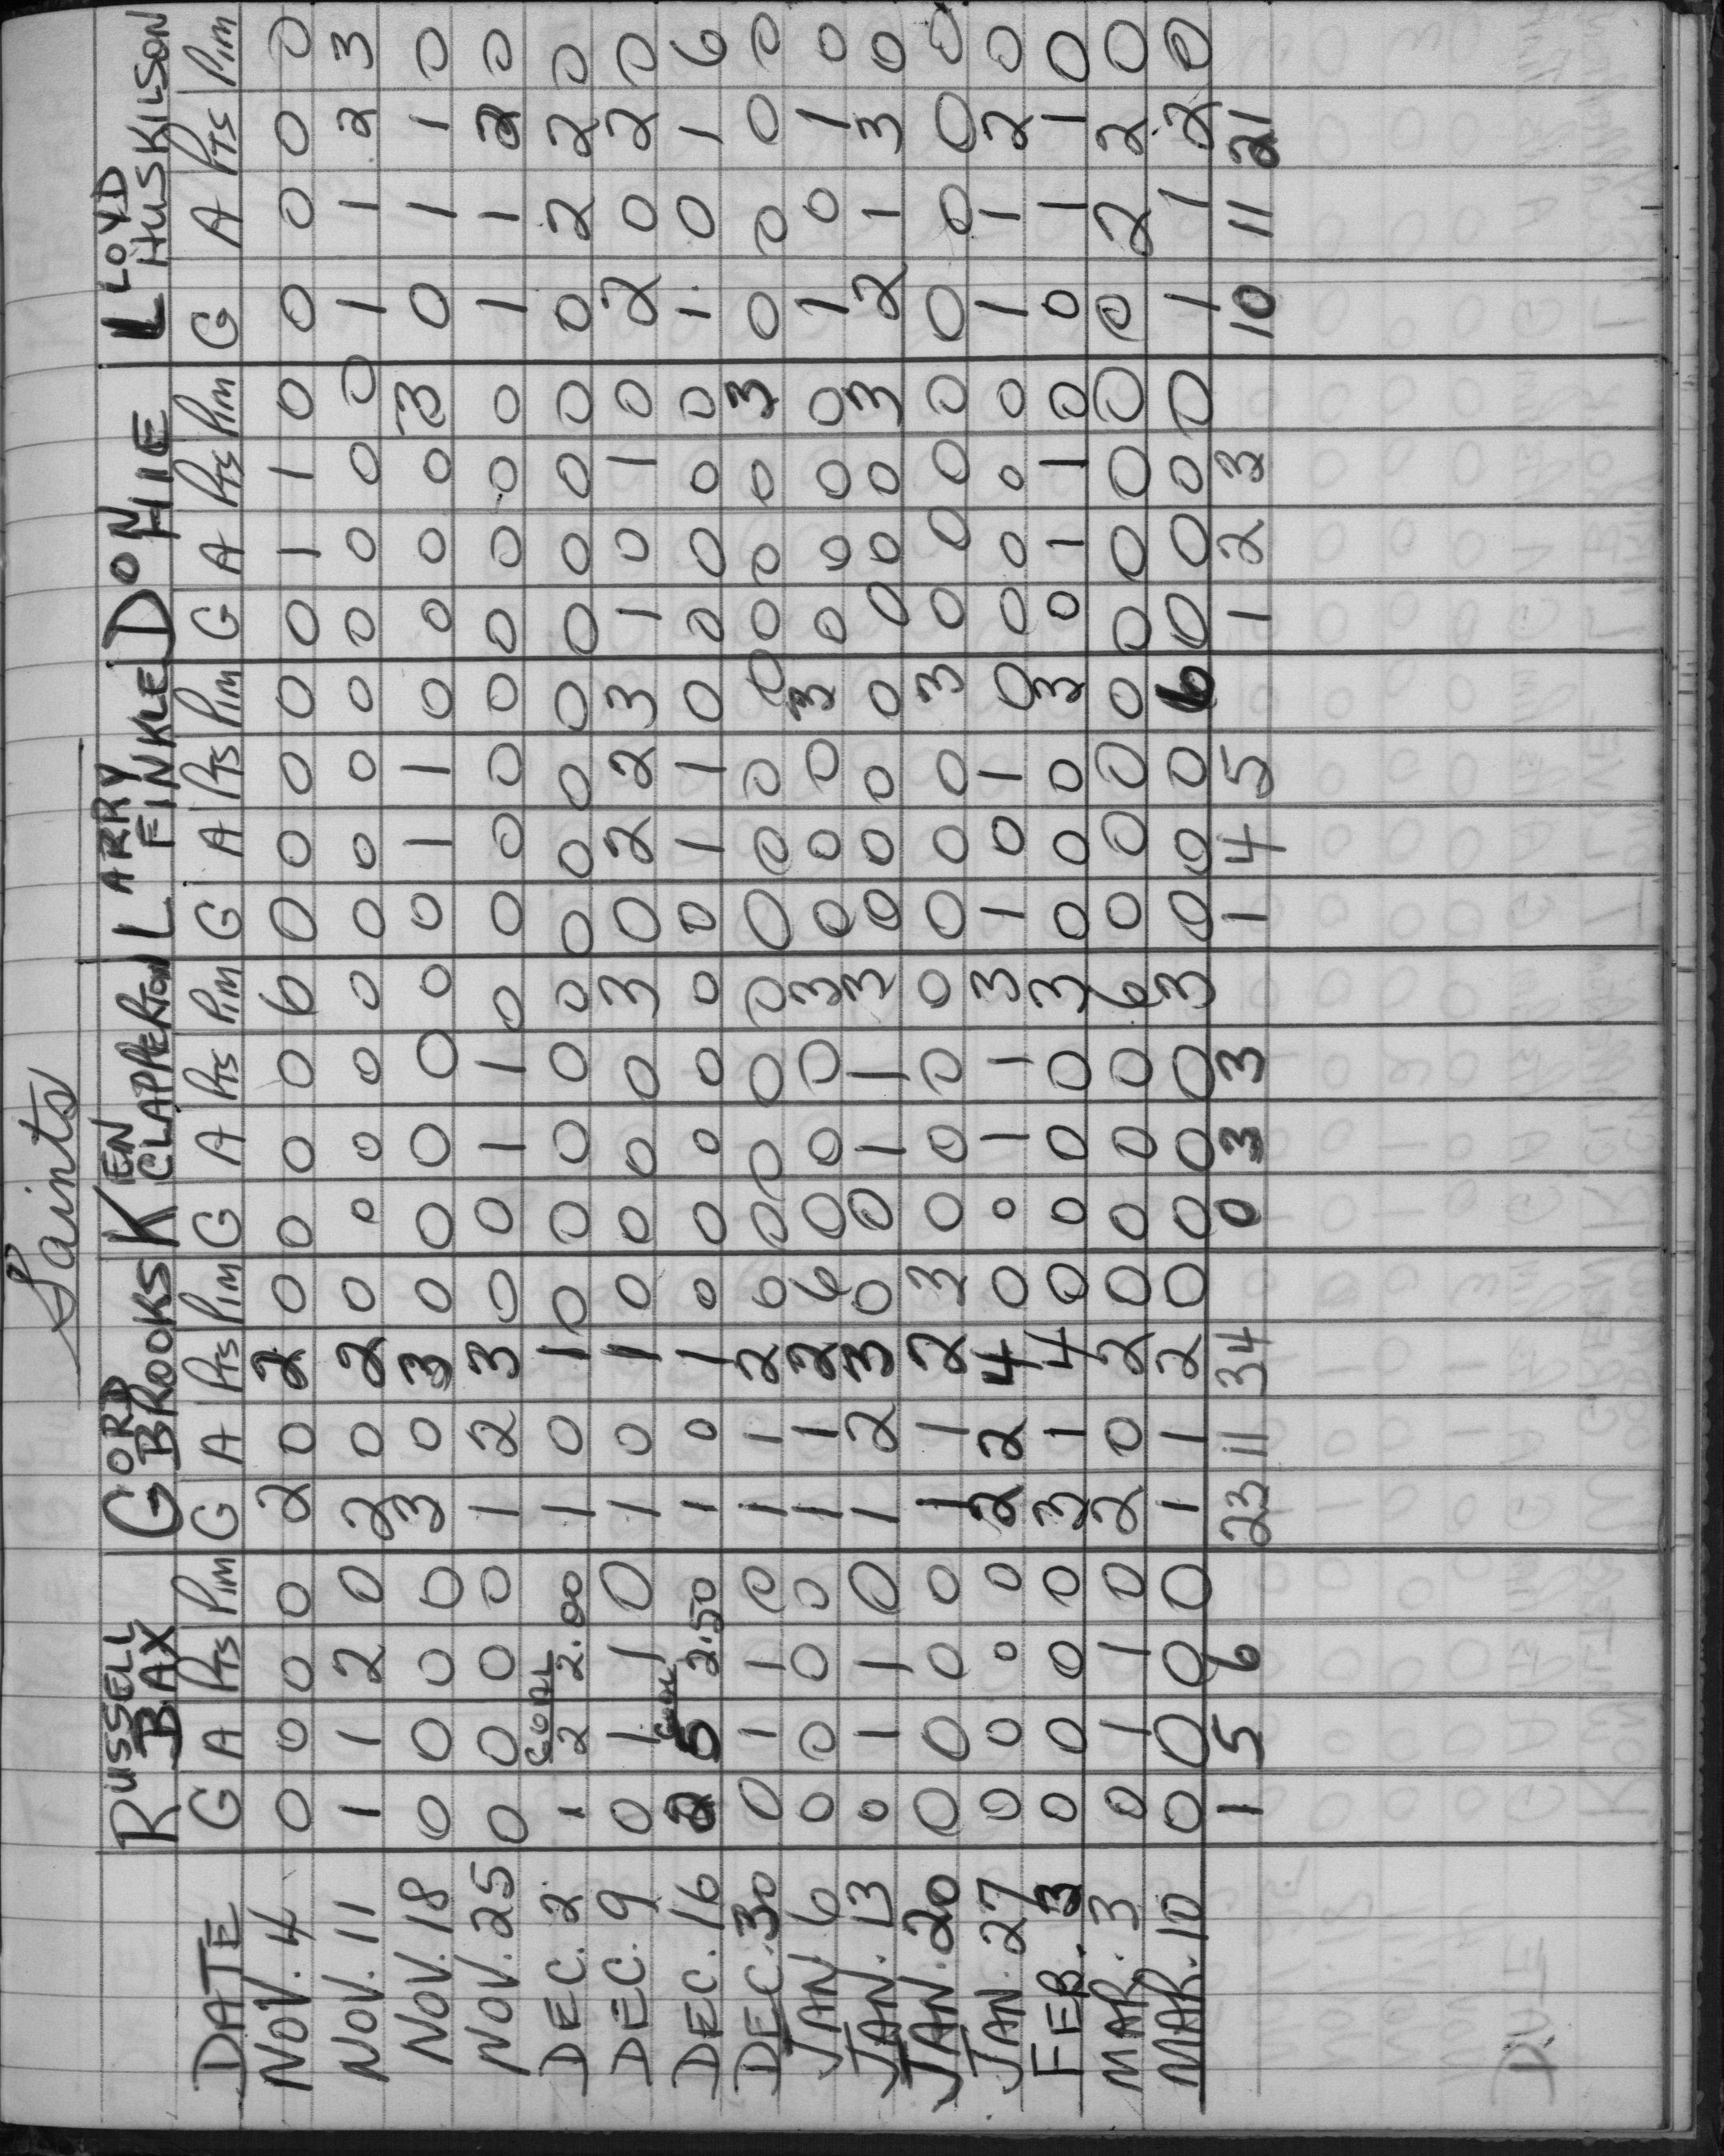 Saints
RUSSELL BAX GORD BROOKS KEN CLAPPERTON LARRY FINKLE DON HIE LLOYD HUSKILSON
DATE G A PTS PIM G A PTS PIM G A PTS PIM G A PTS PIM G A PTS PIM G A PTS PIM
NOV. 4 0 0 0 0 2 0 2 0 0 0 0 6 0 0 0 0 0 1 1 0 0 0 0 0
NOV. 11 1 1 2 0 2 0 2 0 0 0 0 0 0 0 0 0 0 0 0 0 1 1 2 3
NOV. 18 0 0 0 0 3 0 3 0 0 0 0 0 0 1 1 0 0 0 0 3 0 1 1 0
NOV. 25 0 0 0 0 1 2 3 0 0 1 1 0 0 0 0 0 0 0 0 0 1 1 2 0
DEC. 2 1 GOAL 2 2.00 1 0 1 0 0 0 0 0 0 0 0 0 0 0 0 0 0 2 2 0
DEC. 9 0 1 1 0 1 0 1 0 0 0 0 3 0 2 2 3 1 0 1 0 2 0 2 0
DEC. 16 2 GOAL 5 2.50 1 0 1 0 0 0 0 0 0 1 1 0 0 0 0 0 1 0 1 6
DEC. 30 0 1 1 0 1 1 2 0 0 0 0 0 0 0 0 0 0 0 0 3 0 0 0 0
JAN. 6 0 0 0 0 1 1 2 6 0 0 0 3 0 0 0 3 0 0 0 0 1 0 1 0
JAN. 13 0 1 1 0 1 2 3 0 0 1 1 3 0 0 0 0 0 0 0 3 2 1 3 0
JAN. 20 0 0 0 0 1 1 2 3 0 0 0 0 0 0 0 3 0 0 0 0 0 0 0 0
JAN. 27 0 0 0 0 2 2 4 0 0 1 1 3 1 0 1 0 0 0 0 0 1 1 2 0
FEB. 3 0 0 0 0 3 1 4 0 0 0 0 3 0 0 0 3 0 1 1 0 0 1 1 0
MAR. 3 0 1 1 0 2 0 2 0 0 0 0 6 0 0 0 0 0 0 0 0 0 2 2 0
MAR. 10 0 0 0 0 1 1 2 0 0 0 0 3 0 0 0 6 0 0 0 0 1 1 2 0
1 5 6 23 11 34 0 3 3 1 4 5 1 2 3 10 11 21